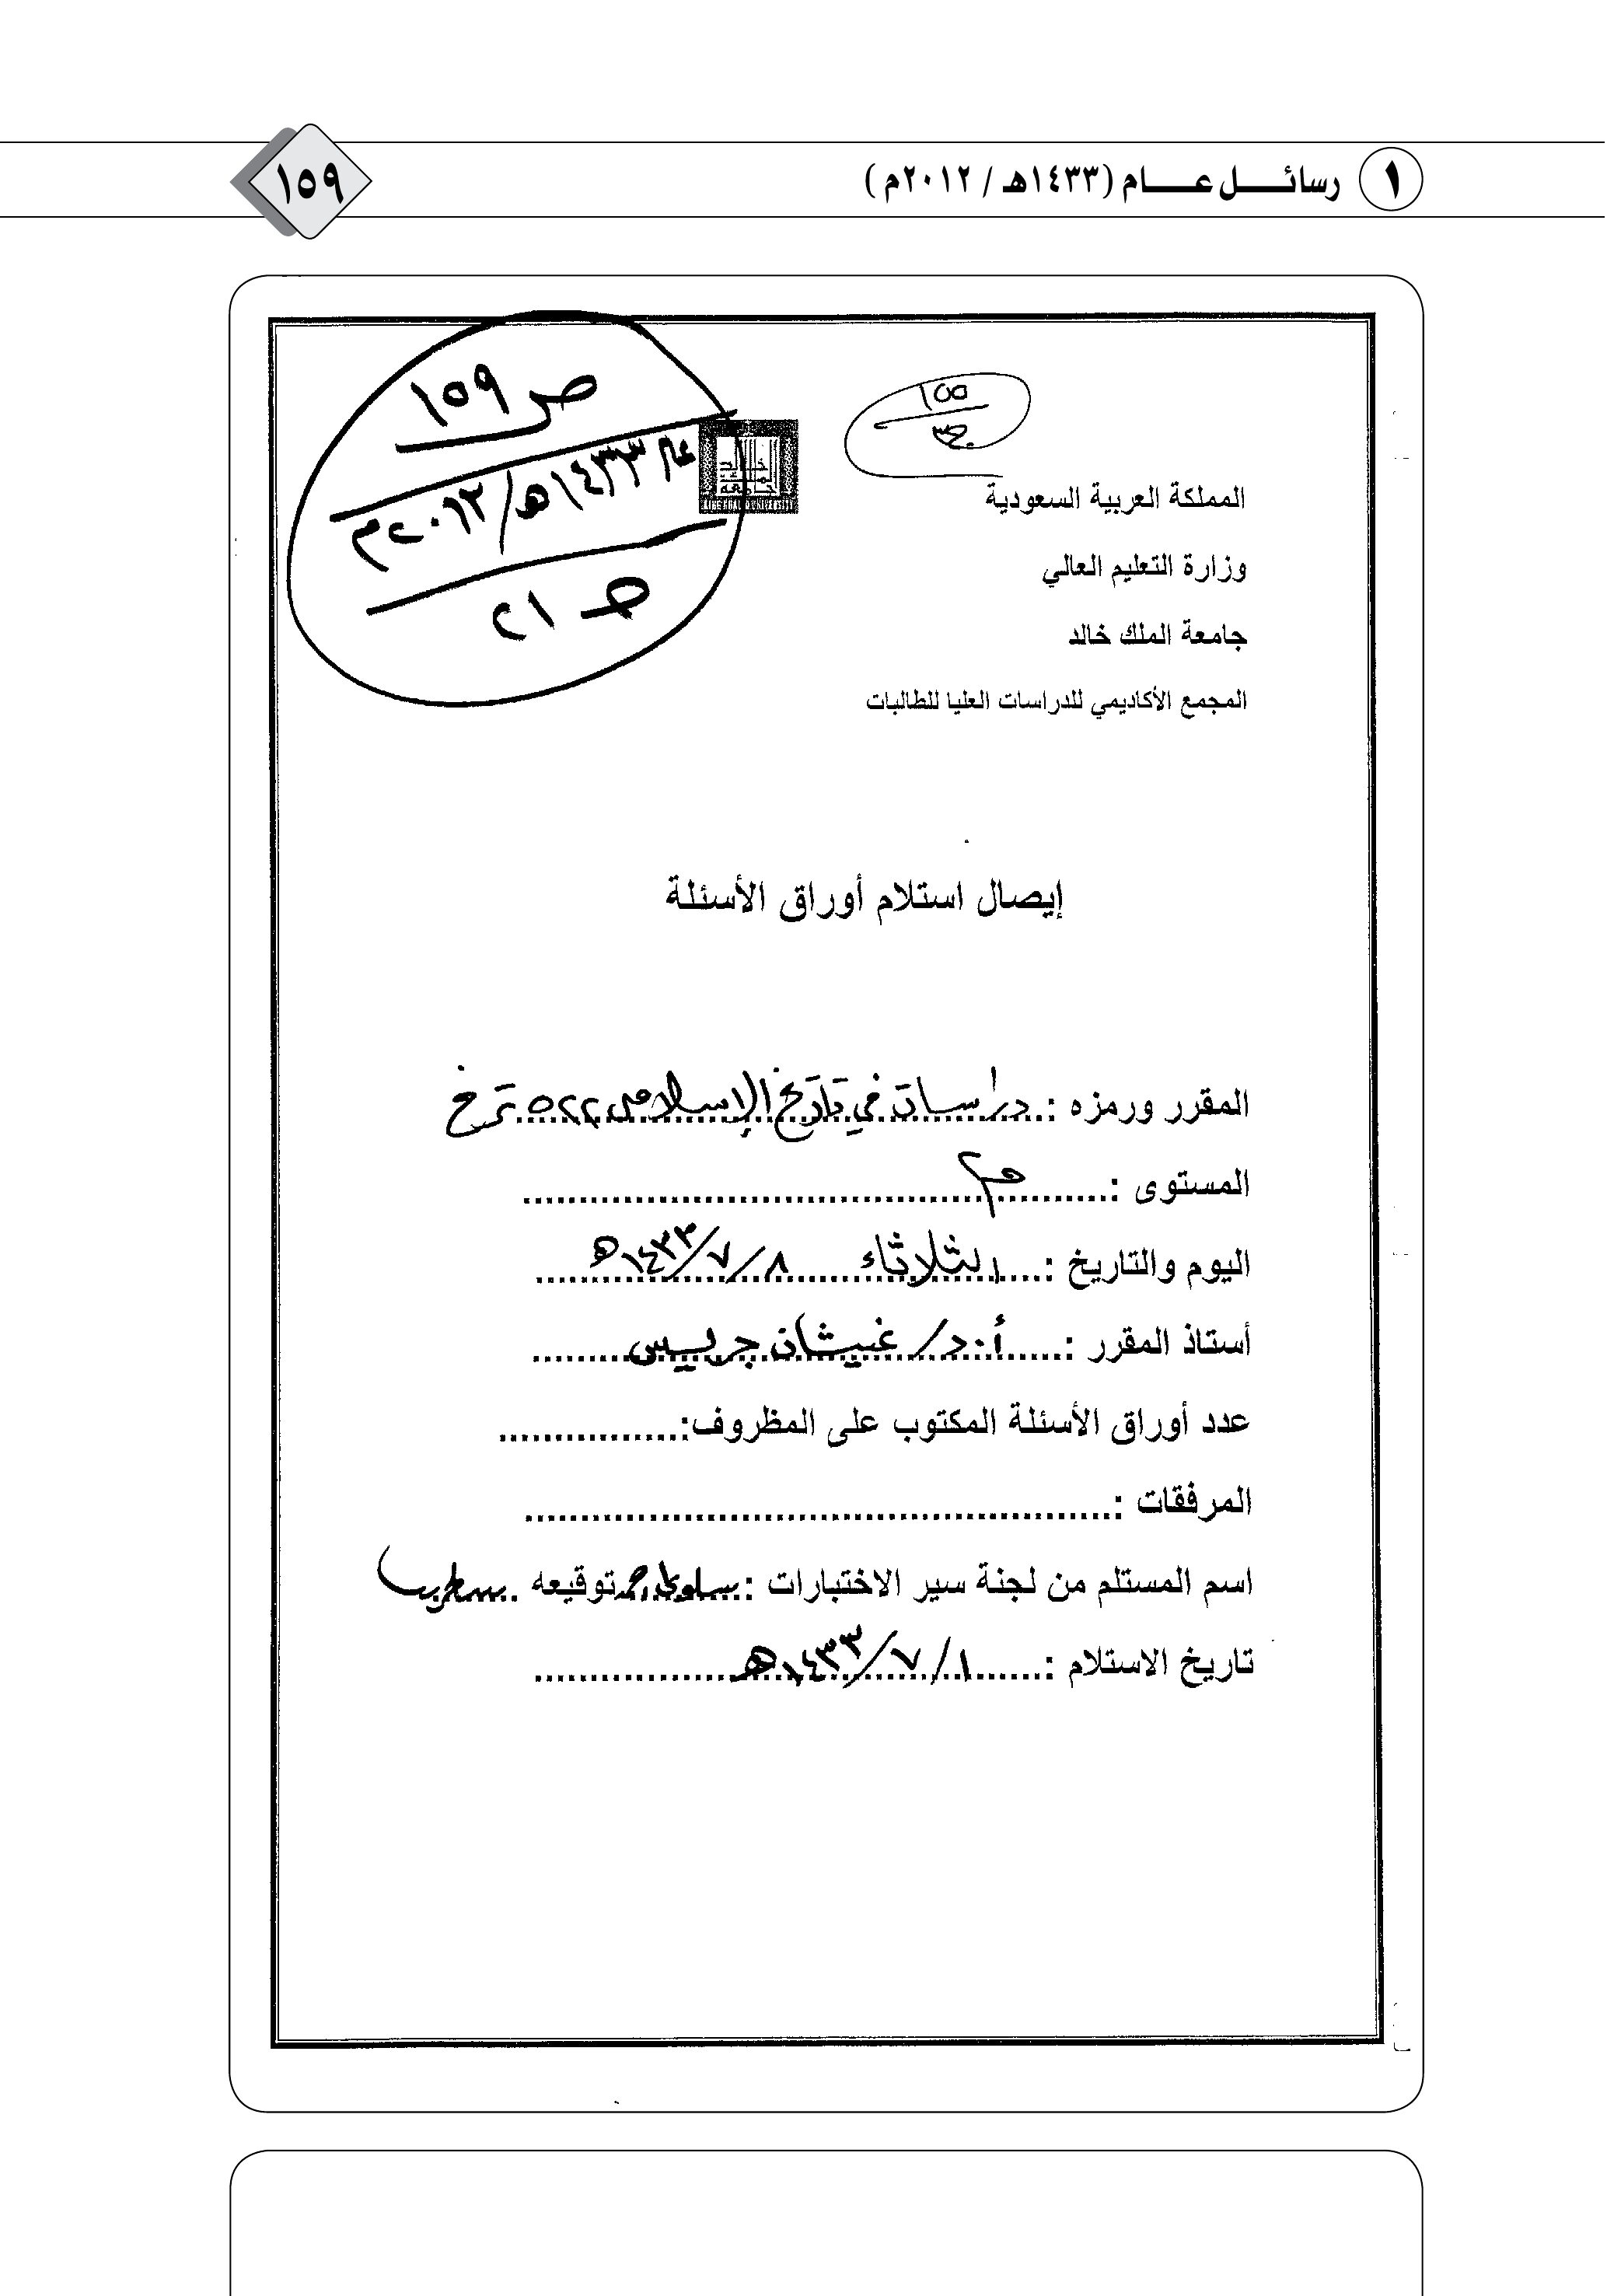 ١ رسائل عام (١٤٣٣هـ / ٢٠١٢م)
١٥٩
ص ١٥٩
عام ١٤٣٣هـ/٢٠١٢م
ص ٢١
١٥٥
المملكة العربية السعودية
وزارة التعليم العالي
جامعة الملك خالد
المجمع الأكاديمي للدراسات العليا للطالبات
جامعة الملك خالد
إيصال استلام أوراق الأسئلة
المقرر ورمزه : دراسات في تاريخ الإسلامي ٥٢٢ ترخ
المستوى : م٢
اليوم والتاريخ : الثلاثاء ٨/٧/١٤٣٣هـ
أستاذ المقرر : أ.د/ غيثان جريس
عدد أوراق الأسئلة المكتوب على المظروف:
المرفقات :
اسم المستلم من لجنة سير الاختبارات : سلوى توقيعه
تاريخ الاستلام : ١/٧/١٤٣٣هـ